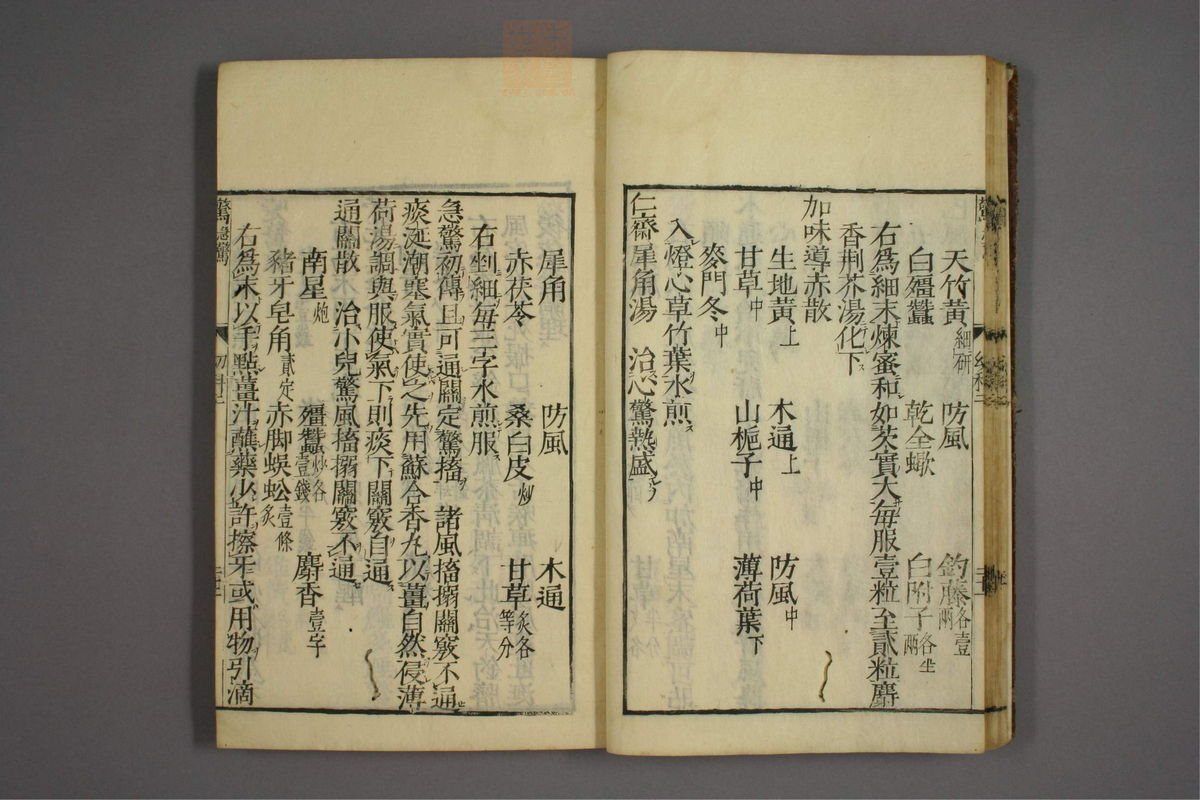 天竹黃細研　防風　釣藤各壹兩
白殭蠶　乾全蠍　白附子各半兩
右爲細末煉蜜和如芡實大每服壹粒至貳粒麝
香荆芥湯化下
加味導赤散
生地黃上　木通上　防風中
甘草中　山梔子中　薄荷葉下
麥門冬中
入燈心草竹葉水煎
仁齋犀角湯　治心驚熱盛
犀角　防風　木通
赤茯苓　桑白皮炒　甘草炙各等分
右剉細每三字水煎服
急驚初傳且可通關定驚搐　諸風搐搦關竅不通
痰涎潮塞氣實使之先用蘇合香丸以薑自然侵薄
荷湯調與服使氣下則痰下關竅自通
通關散　治小兒驚風搐搦關竅不通
南星炮　殭蠶炒各壹錢　麝香壹字
豬牙皂角貳定　赤脚蜈蚣壹條炙
右爲末以手點薑汁蘸藥少許擦牙或用物引滴